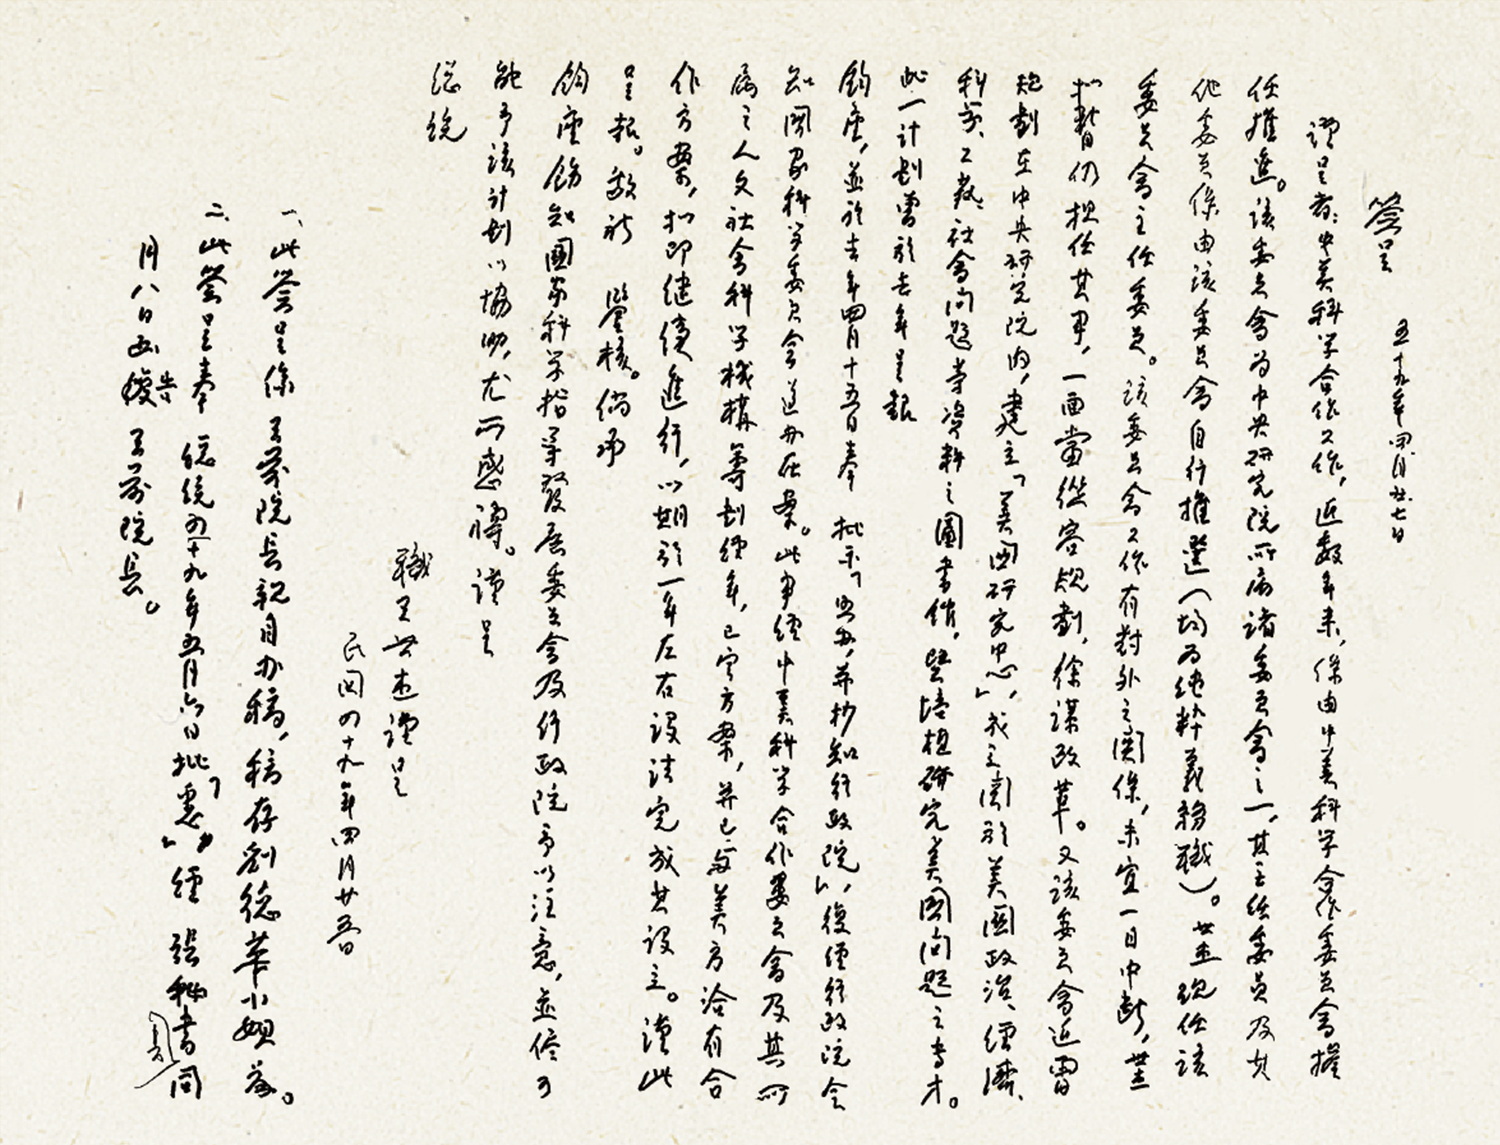 簽呈　五十九年四月廿七日
謹呈者：中美科学合作工作，近數年来，係由中美科学合作委員會擔
任推進。該委員會為中央研究院所屬諸委員會之一，其主任委員及其
他委員係由該委員會自行推選（均为純粹義務職）。世杰現任該
委員會主任委員。該委員會工作有對外之關係，未宜一日中斷，世杰
擬暫仍担任其事，一面當從容規劃，徐謀改革。又該委員會近曾
規劃在中央研究院內，建立「美国研究中心」，成立関於美國政治、經濟、
科学、工藝、社會问題等資料之圖書館，野培植研究美国问題之专才。
此一计划曾於去年呈報
鈞座，並於去年四月十五日奉　批示「照办，并抄知行政院」，復經行政院令
知国家科学委員會遵办在案。此事經中美科学合作委員會及其所
属之人文社會科学機構籌划經年，已定方案，并已與美方洽有合
作方案，擬即继续進行，以期於一年左右設法完成其設立。謹此
呈報。敬祈　鑒核。倘承
鈞座飭知國家科学指导發展委員會及行政院予以注意，並儘可
能予該计划以協助，尤所感禱。謹呈
總统
職　王世杰謹呈
民国四十九年四月廿五日
一、此簽呈係　王前院長親自办稿，稿存劉總幹小姐處。
二、此簽呈奉　總统四十九年五月六日批「悉」，經　張秘書同
月八日函復告　王前院長。